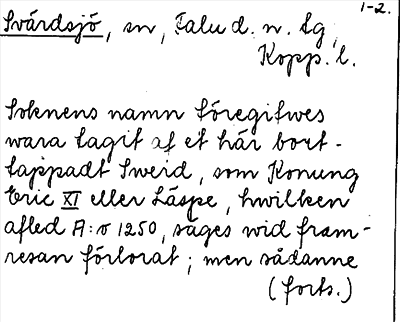 1-2.
Svärdsjö, sn, Falu d. n. tg,
Kopp. l.
Soknens namn föregifwes
wara tagit af et här bort-
tappadt Sweid, som Konung
Eric XI eller Läspe, hwilken
afled A:o 1250, säges wid fram-
resan förlorat; men sådanne
(forts.)